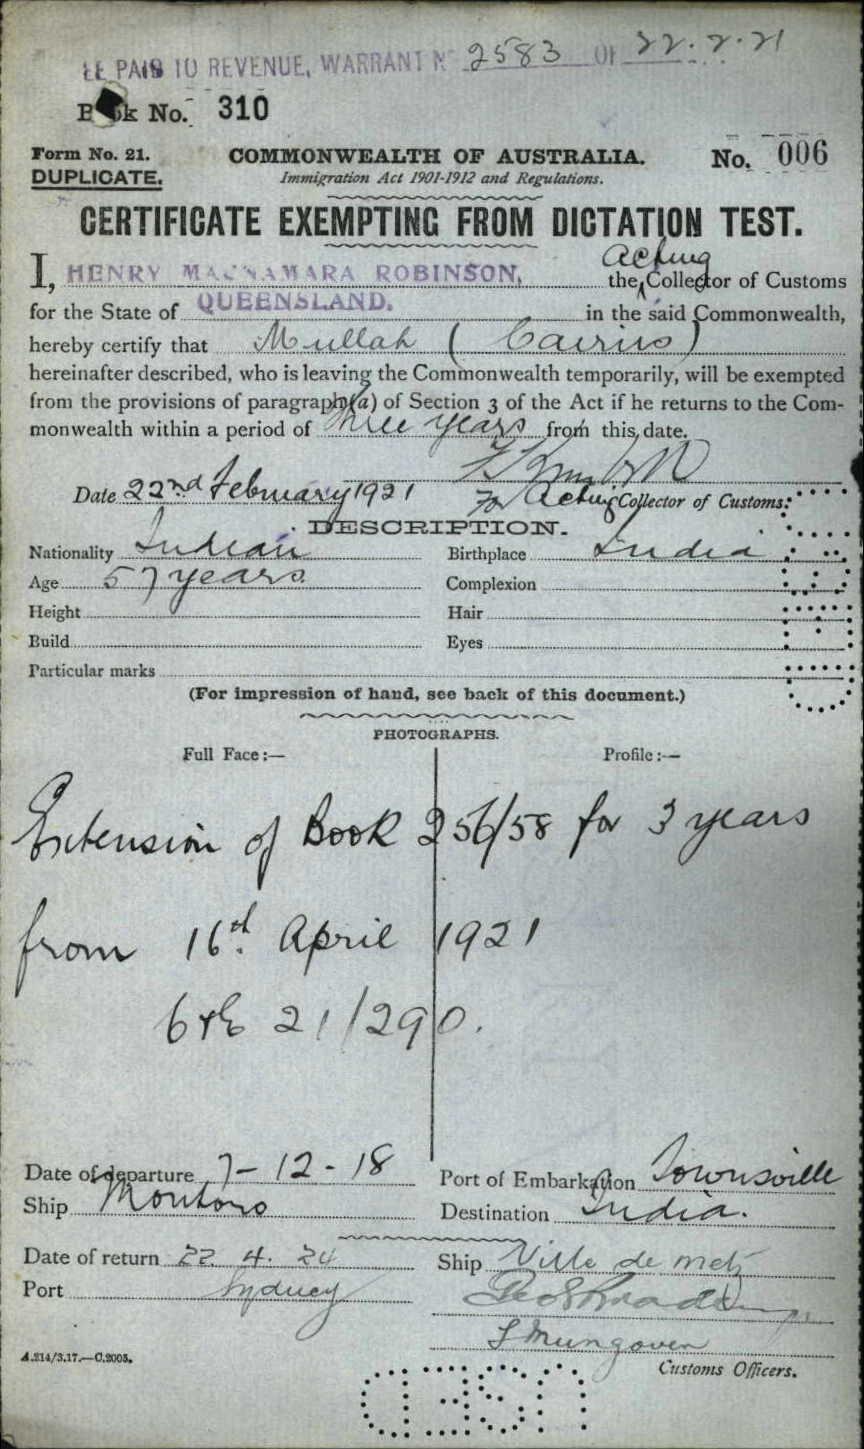 £1 PAID TO REVENUE, WARRANT No 2583 OF 22.2.21
Book No. 310
Form No. 21. COMMONWEALTH OF AUSTRALIA. No. 006
DUPLICATE. Immigration Act 1901-1912 and Regulations.
CERTIFICATE EXEMPTING FROM DICTATION TEST.
I, HENRY MACNAMARA ROBINSON, the Acting Collector of Customs
for the State of QUEENSLAND. in the said Commonwealth,
hereby certify that Mullah (Cairns)
hereinafter described, who is leaving the Commonwealth temporarily, will be exempted
from the provisions of paragraph (a) of Section 3 of the Act if he returns to the Com-
monwealth within a period of three years from this date.
Date 22nd February 1921 For Acting Collector of Customs.
DESCRIPTION.
Nationality Indian Birthplace India
Age 57 years Complexion
Height Hair
Build Eyes
Particular marks
(For impression of hand, see back of this document.)
PHOTOGRAPHS.
Full Face:— Profile:—
Extension of Book 256/58 for 3 years
from 16th April 1921
21/290.
Date of departure 7-12-18 Port of Embarkation Townsville
Ship Montoro Destination India.
Date of return 22. 4. 24 Ship Ville de Metz
Port Sydney
Mungoven
A.214/3.17.—C.2005. Customs Officers.